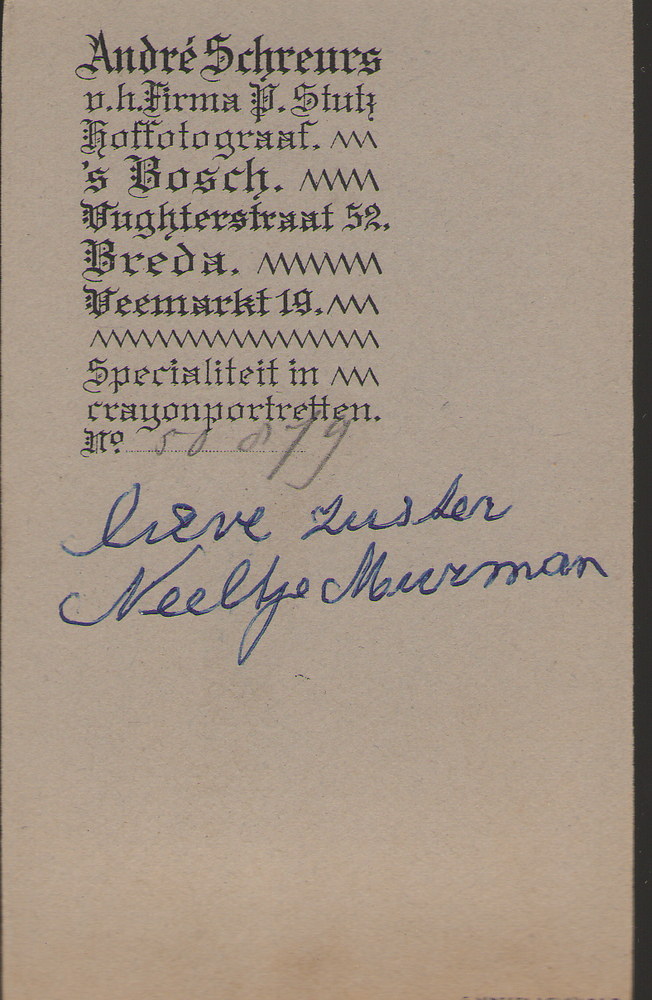 André Schreurs
v.h. Firma P. Stutz
Hoffotograaf.
's Bosch.
Vughterstraat 52.
Breda.
Veemarkt 19.
Specialiteit in
crayonportretten.
No. 50 879
lieve zuster
Neeltje Muurman